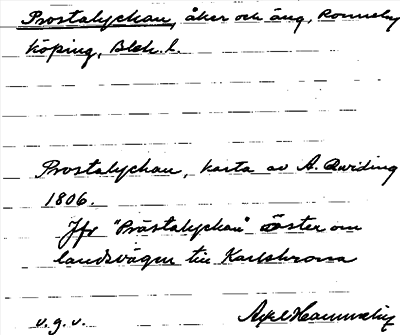 Prostalyckan, åker och äng, Ronneby
Köping, Blek. l.
Prostalyckan, karta av A. Qviding
1806.
Jfr "Prästalyckan" öster om
landsvägen till Karlskrona
v.g.v. Axel